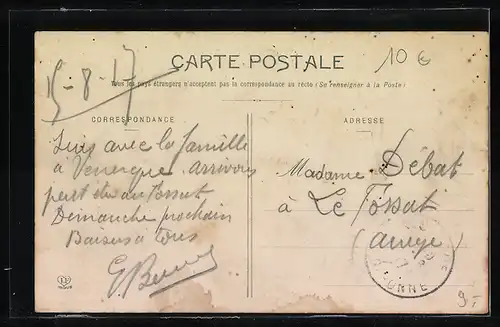 15-8-17
10 €
CARTE POSTALE
Tous les pays étrangers n'acceptent pas la correspondance au recto (Se renseigner à la Poste)
CORRESPONDANCE
ADRESSE
Suis avec la famille
à Venerque arrivons
au Fossat
Dimanche prochain
Baisers à tous
Madame Débat
à Le Fossat
(Ariège)
ONNE
9.-